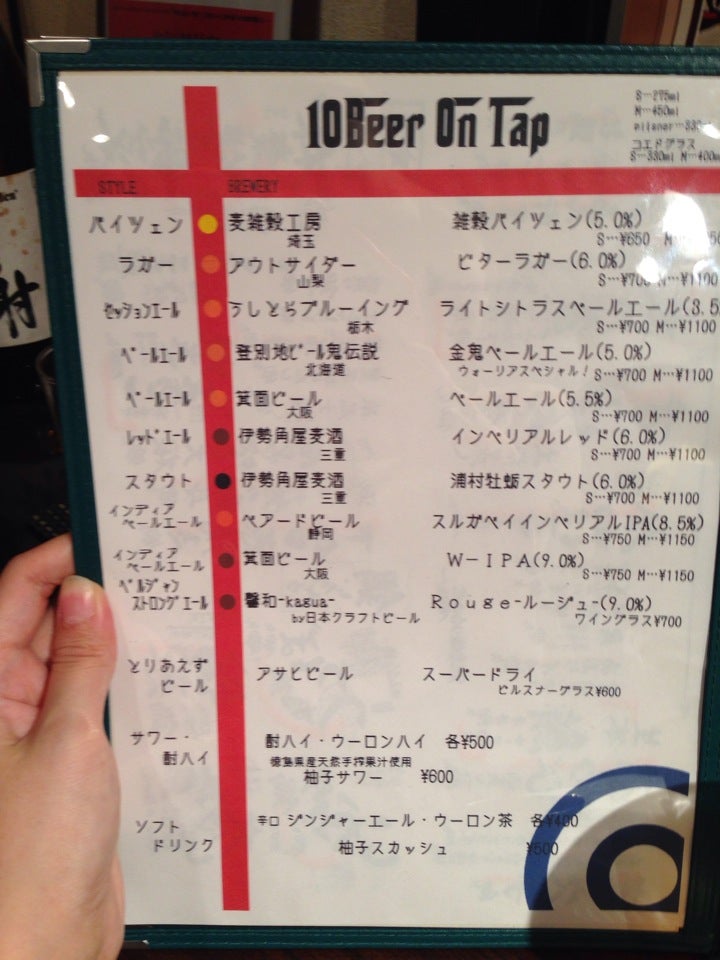 10Beer On Tap
S…275ml
M…450ml
pilsner…330
コエドグラス
S…330ml M…400m
STYLE BREWERY
バイツェン 麦雑穀工房 雑穀バイツェン(5.0%)
埼玉 S…¥650
ラガー アウトサイダー ビターラガー(6.0%)
山梨 S…¥700 M…¥1100
セッションエール うしとらブルーイング ライトシトラスペールエール(3.5
栃木 S…¥700 M…¥1100
ペールエール 登別地ビール鬼伝説 金鬼ペールエール(5.0%)
北海道 ウォーリアスペシャル! S…¥700 M…¥1100
ペールエール 箕面ビール ペールエール(5.5%)
大阪 S…¥700 M…¥1100
レッドエール 伊勢角屋麦酒 インペリアルレッド(6.0%)
三重 S…¥700 M…¥1100
スタウト 伊勢角屋麦酒 浦村牡蛎スタウト(6.0%)
三重 S…¥700 M…¥1100
インディア
ペールエール ベアードビール スルガベイインペリアルIPA(8.5%)
静岡 S…¥750 M…¥1150
インディア
ペールエール 箕面ビール W-IPA(9.0%)
大阪 S…¥750 M…¥1150
ベルジャン
ストロングエール 馨和-kagua- Rouge-ルージュ-(9.0%)
by日本クラフトビール ワイングラス¥700
とりあえず
ビール アサヒビール スーパードライ
ピルスナーグラス¥600
サワー・
酎ハイ 酎ハイ・ウーロンハイ 各¥500
徳島県産天然手搾果汁使用
柚子サワー ¥600
ソフト
ドリンク 辛口 ジンジャーエール・ウーロン茶 各¥400
柚子スカッシュ ¥500
射